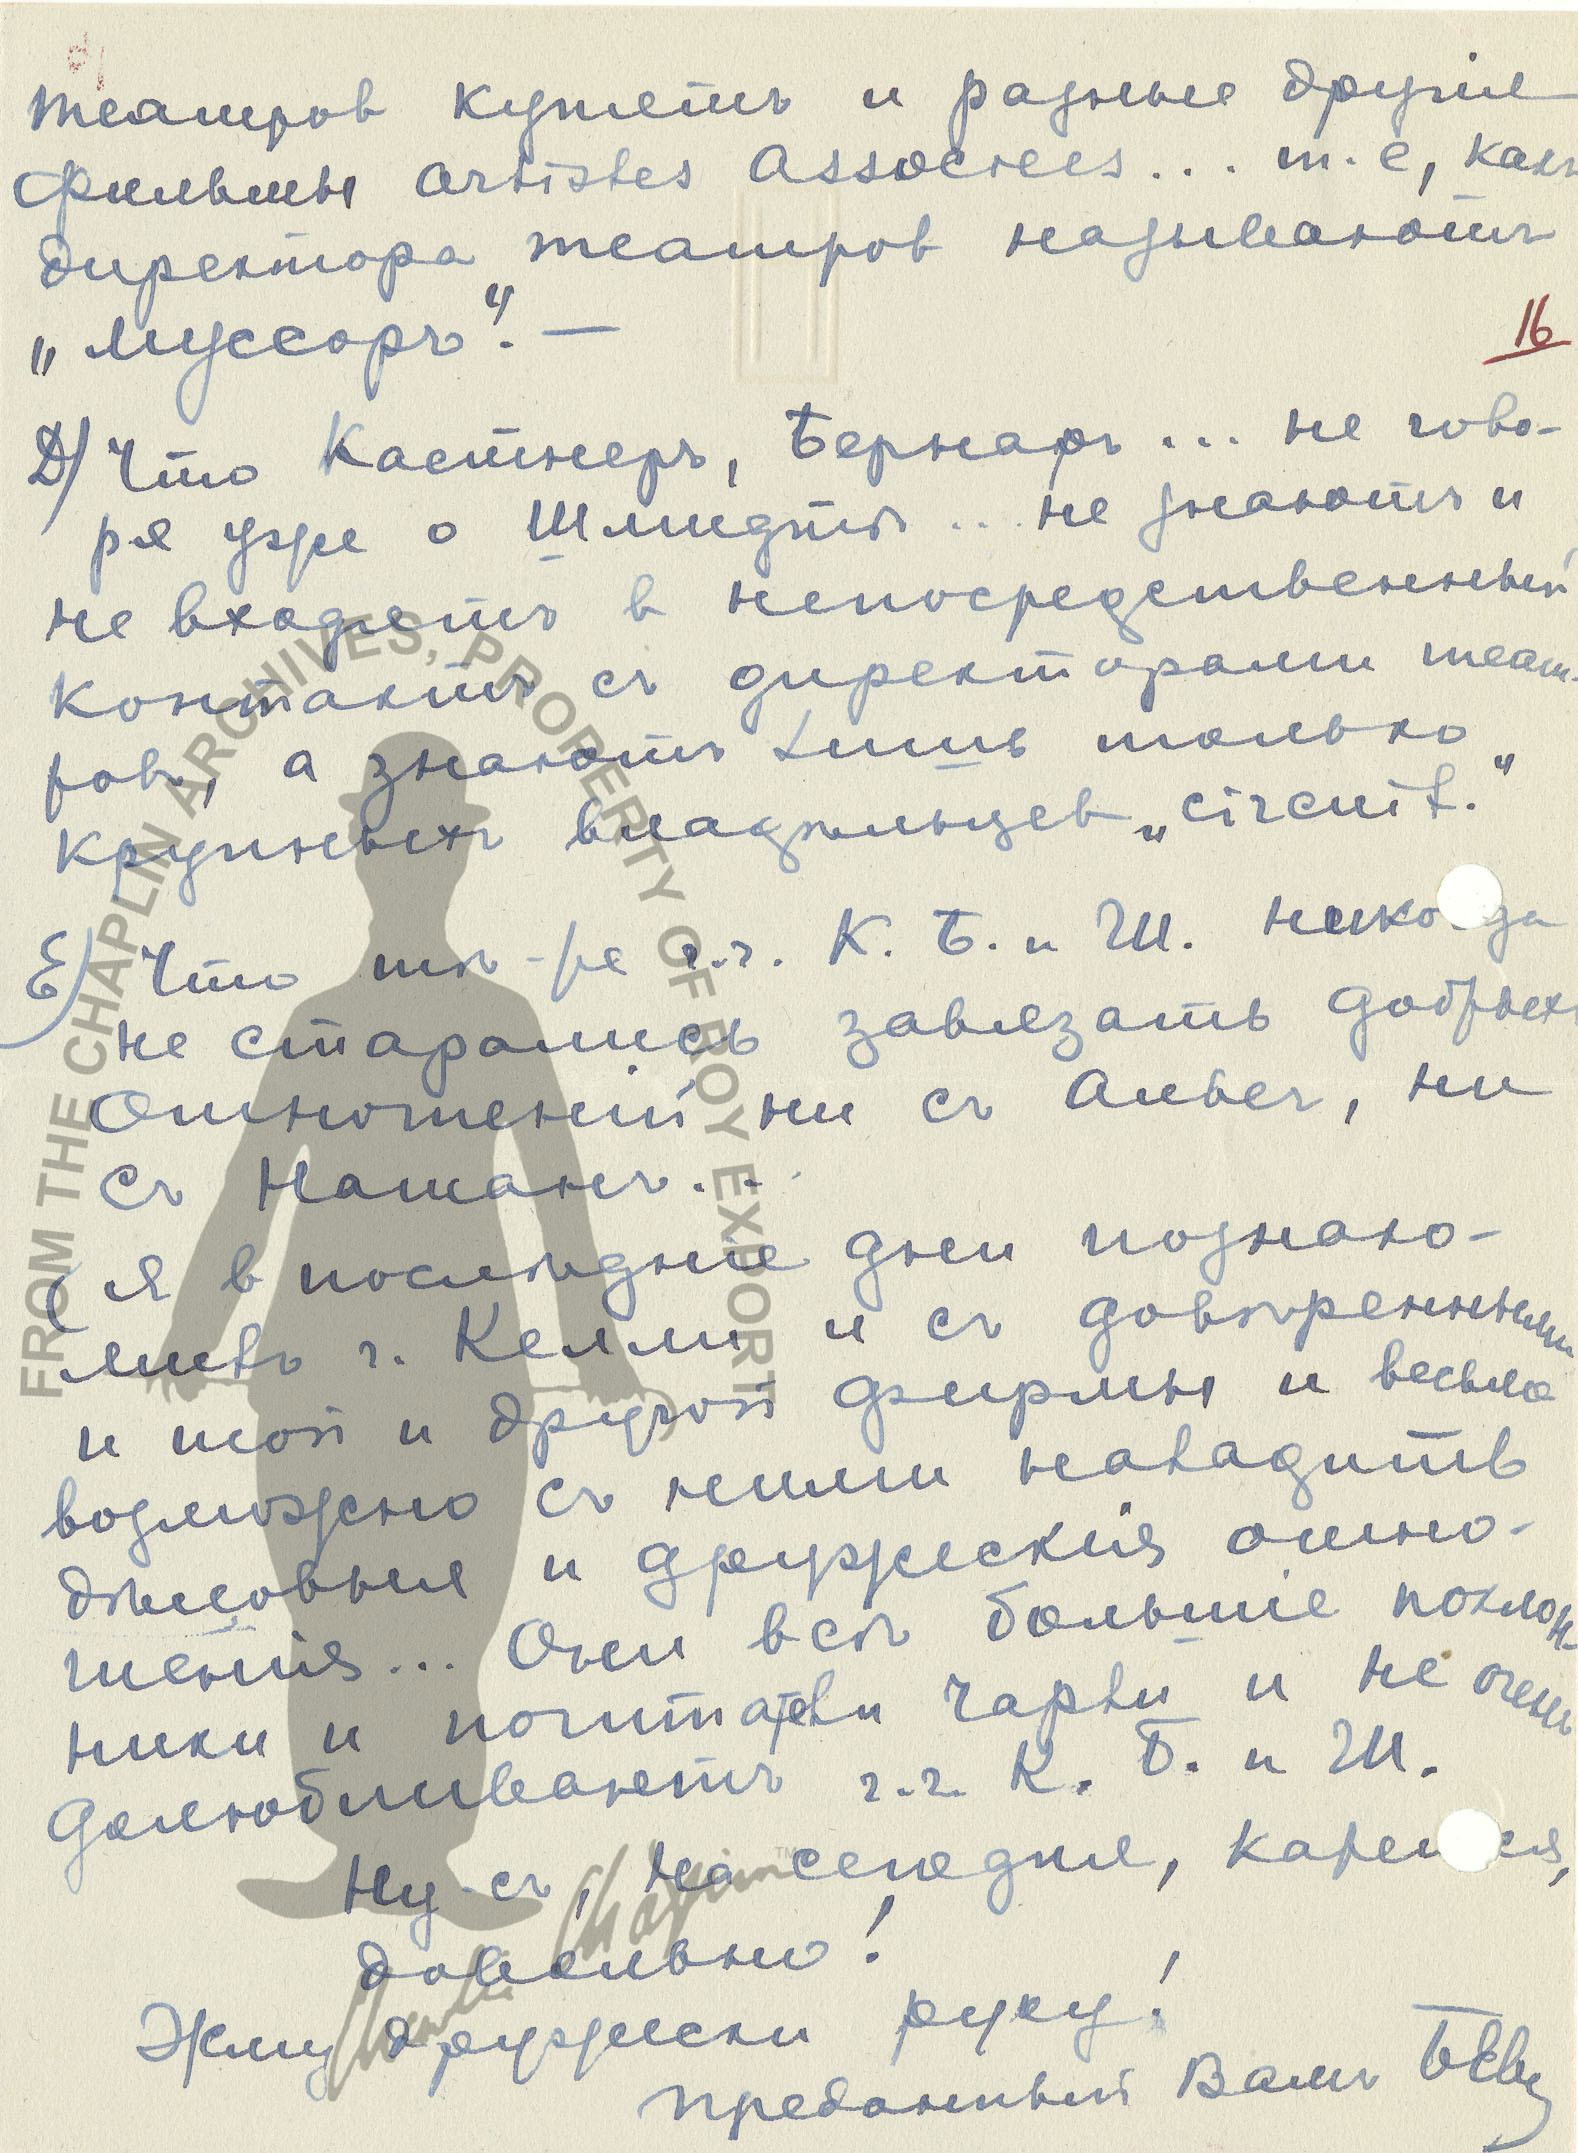 театров купятъ и разные другіе
фильмы Artistes Associees... т.е, какъ
директора театров называютъ
„Муссоръ". —
16
Д) Что Кастнеръ, Бернаръ... не гово-
ря уже о Шмидтѣ... не знаютъ и
не входятъ в непосредственный
контактъ съ директорами теат-
ровъ, а знаютъ лишь только
крупныхъ владѣльцев „circuit."
Е) Что тѣ-же г.г. К. Б. и Ш. никогда
не старались завязать добрыхъ
отношеній ни съ Aubert, ни
съ Натанъ...
(я в послѣдніе дни познако-
милъ г. Келли и съ довѣренными
и той и другой фирмы и весьма
возможно съ ними наладить
дѣловыя и дружескія отно-
шенія... Они всѣ большіе поклон
ники и почитатели Чарли и не очень
долюбливаютъ г.г. К. Б. и Ш.
Ну-съ, на сегодня, кажется,
довольно!
Жму дружески руку!
преданный Вамъ
FROM THE CHAPLIN ARCHIVES, PROPERTY OF ROY EXPORT
Charlie Chaplin™